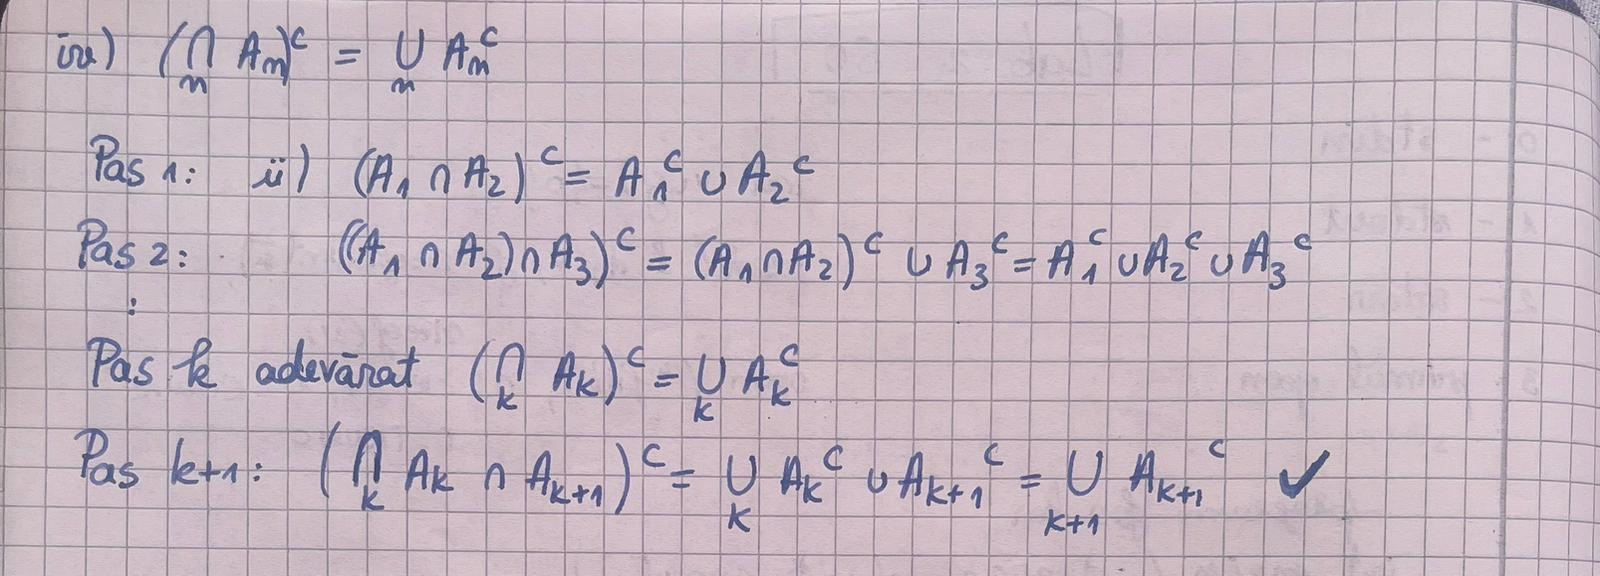 iv) (⋂ₙ Aₙ)ᶜ = ⋃ₙ Aₙᶜ
Pas 1: ii) (A₁ ∩ A₂)ᶜ = A₁ᶜ ∪ A₂ᶜ
Pas 2: ((A₁ ∩ A₂) ∩ A₃)ᶜ = (A₁ ∩ A₂)ᶜ ∪ A₃ᶜ = A₁ᶜ ∪ A₂ᶜ ∪ A₃ᶜ
:
Pas k adevărat (⋂ₖ Aₖ)ᶜ = ⋃ₖ Aₖᶜ
Pas k+1: (⋂ₖ Aₖ ∩ Aₖ₊₁)ᶜ = ⋃ₖ Aₖᶜ ∪ Aₖ₊₁ᶜ = ⋃ₖ₊₁ Aₖ₊₁ᶜ ✓